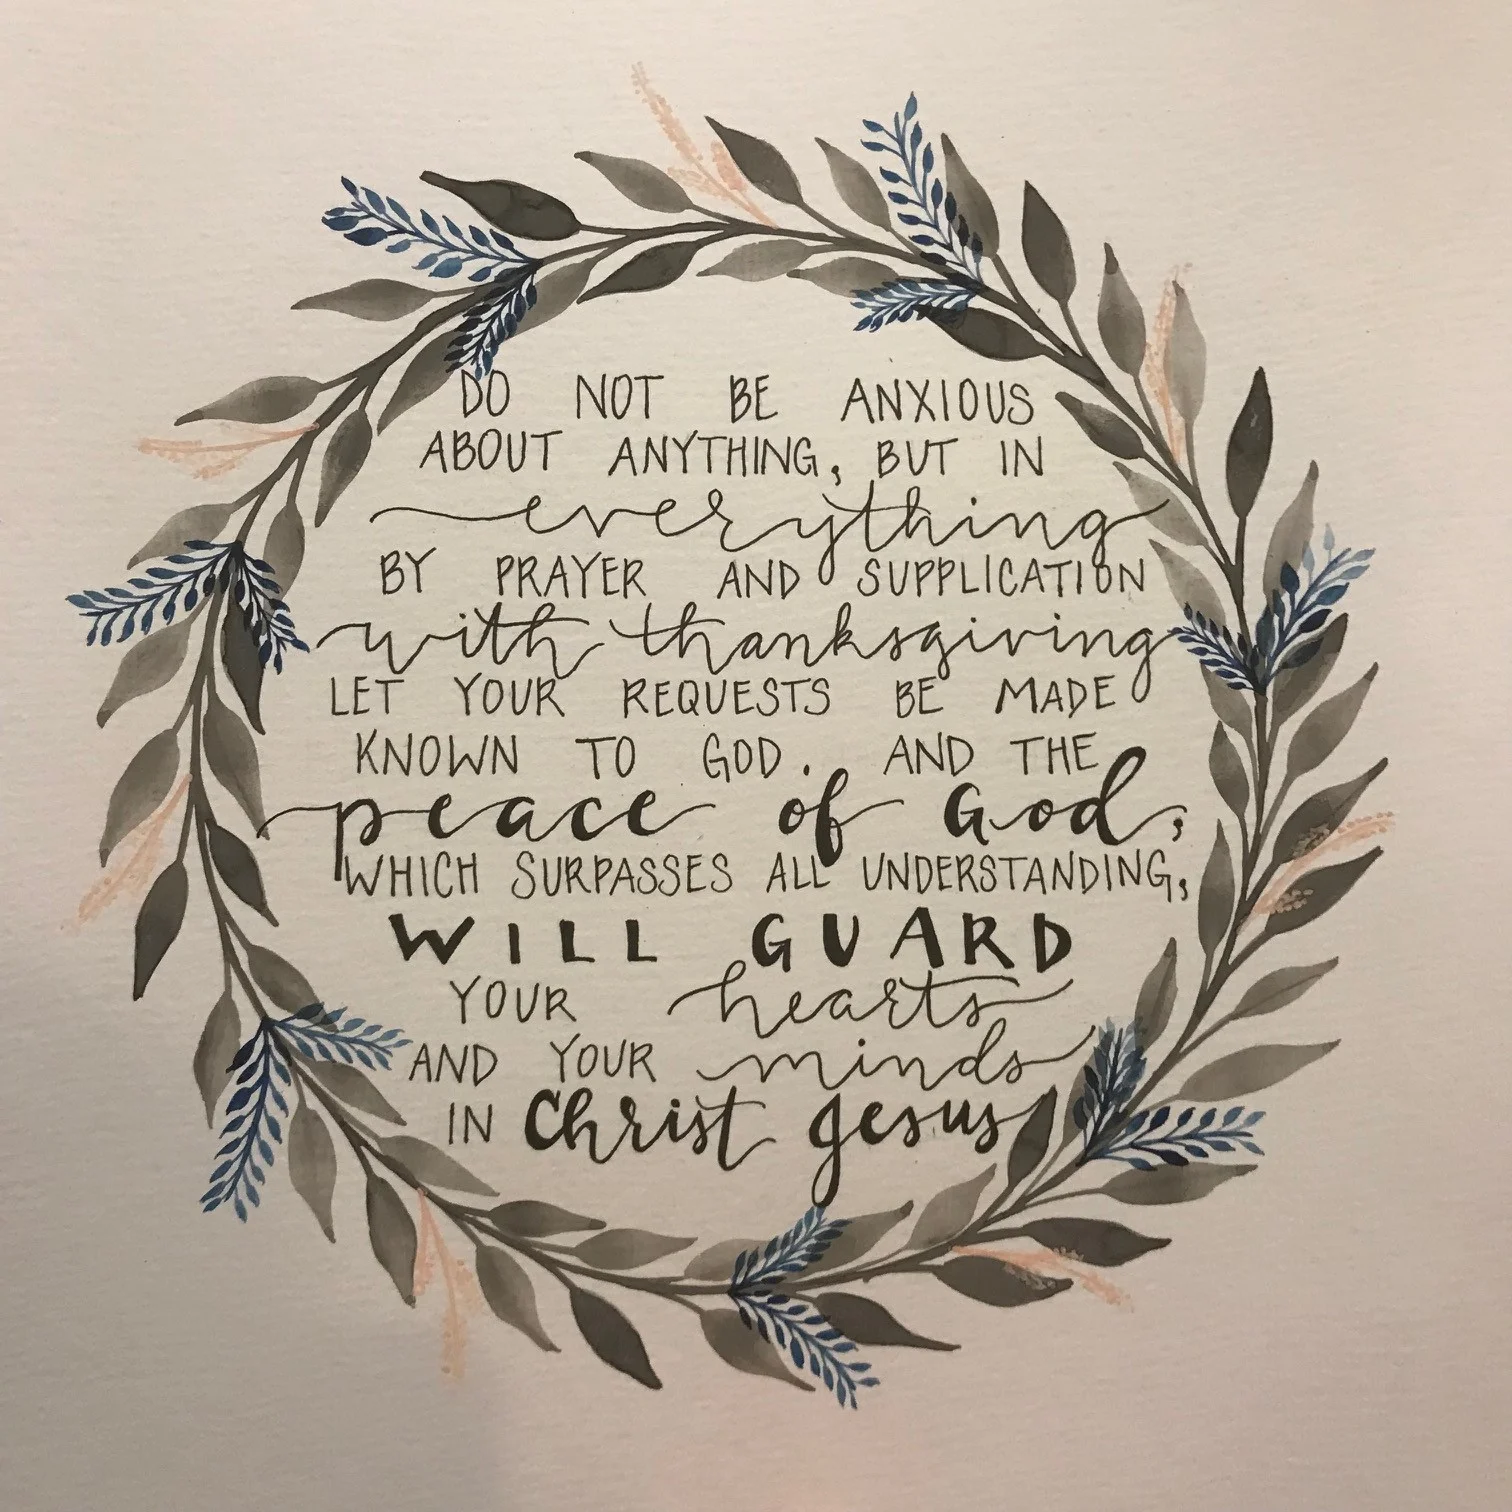 DO NOT BE ANXIOUS
ABOUT ANYTHING, BUT IN
everything
BY PRAYER AND SUPPLICATION
with thanksgiving
LET YOUR REQUESTS BE MADE
KNOWN TO GOD. AND THE
peace of God,
WHICH SURPASSES ALL UNDERSTANDING,
WILL GUARD
YOUR hearts
AND YOUR minds
IN Christ Jesus